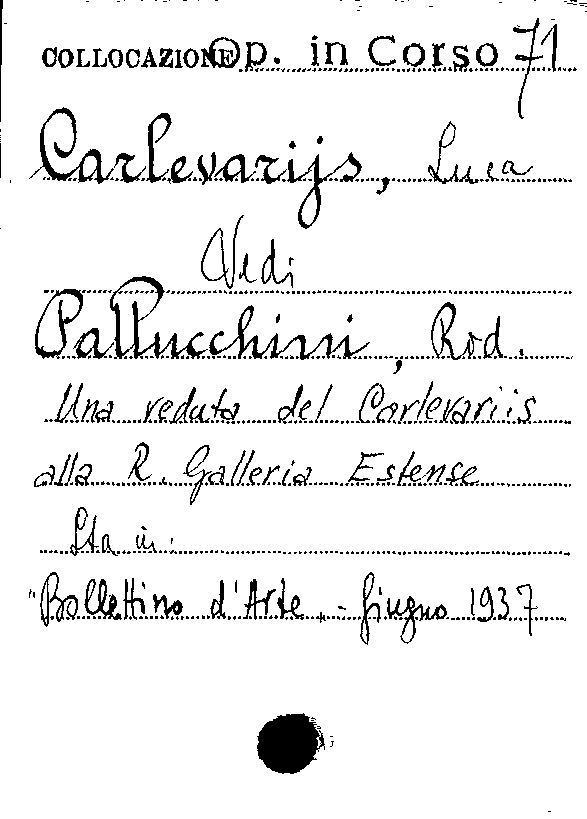 COLLOCAZIONE Op. in Corso 71
Carlevarijs, Luca
Vedi
Pallucchini, Rod.
Una veduta del Carlevariis
alla R. Galleria Estense
Sta in:
"Bollettino d'Arte„ - Giugno 1937